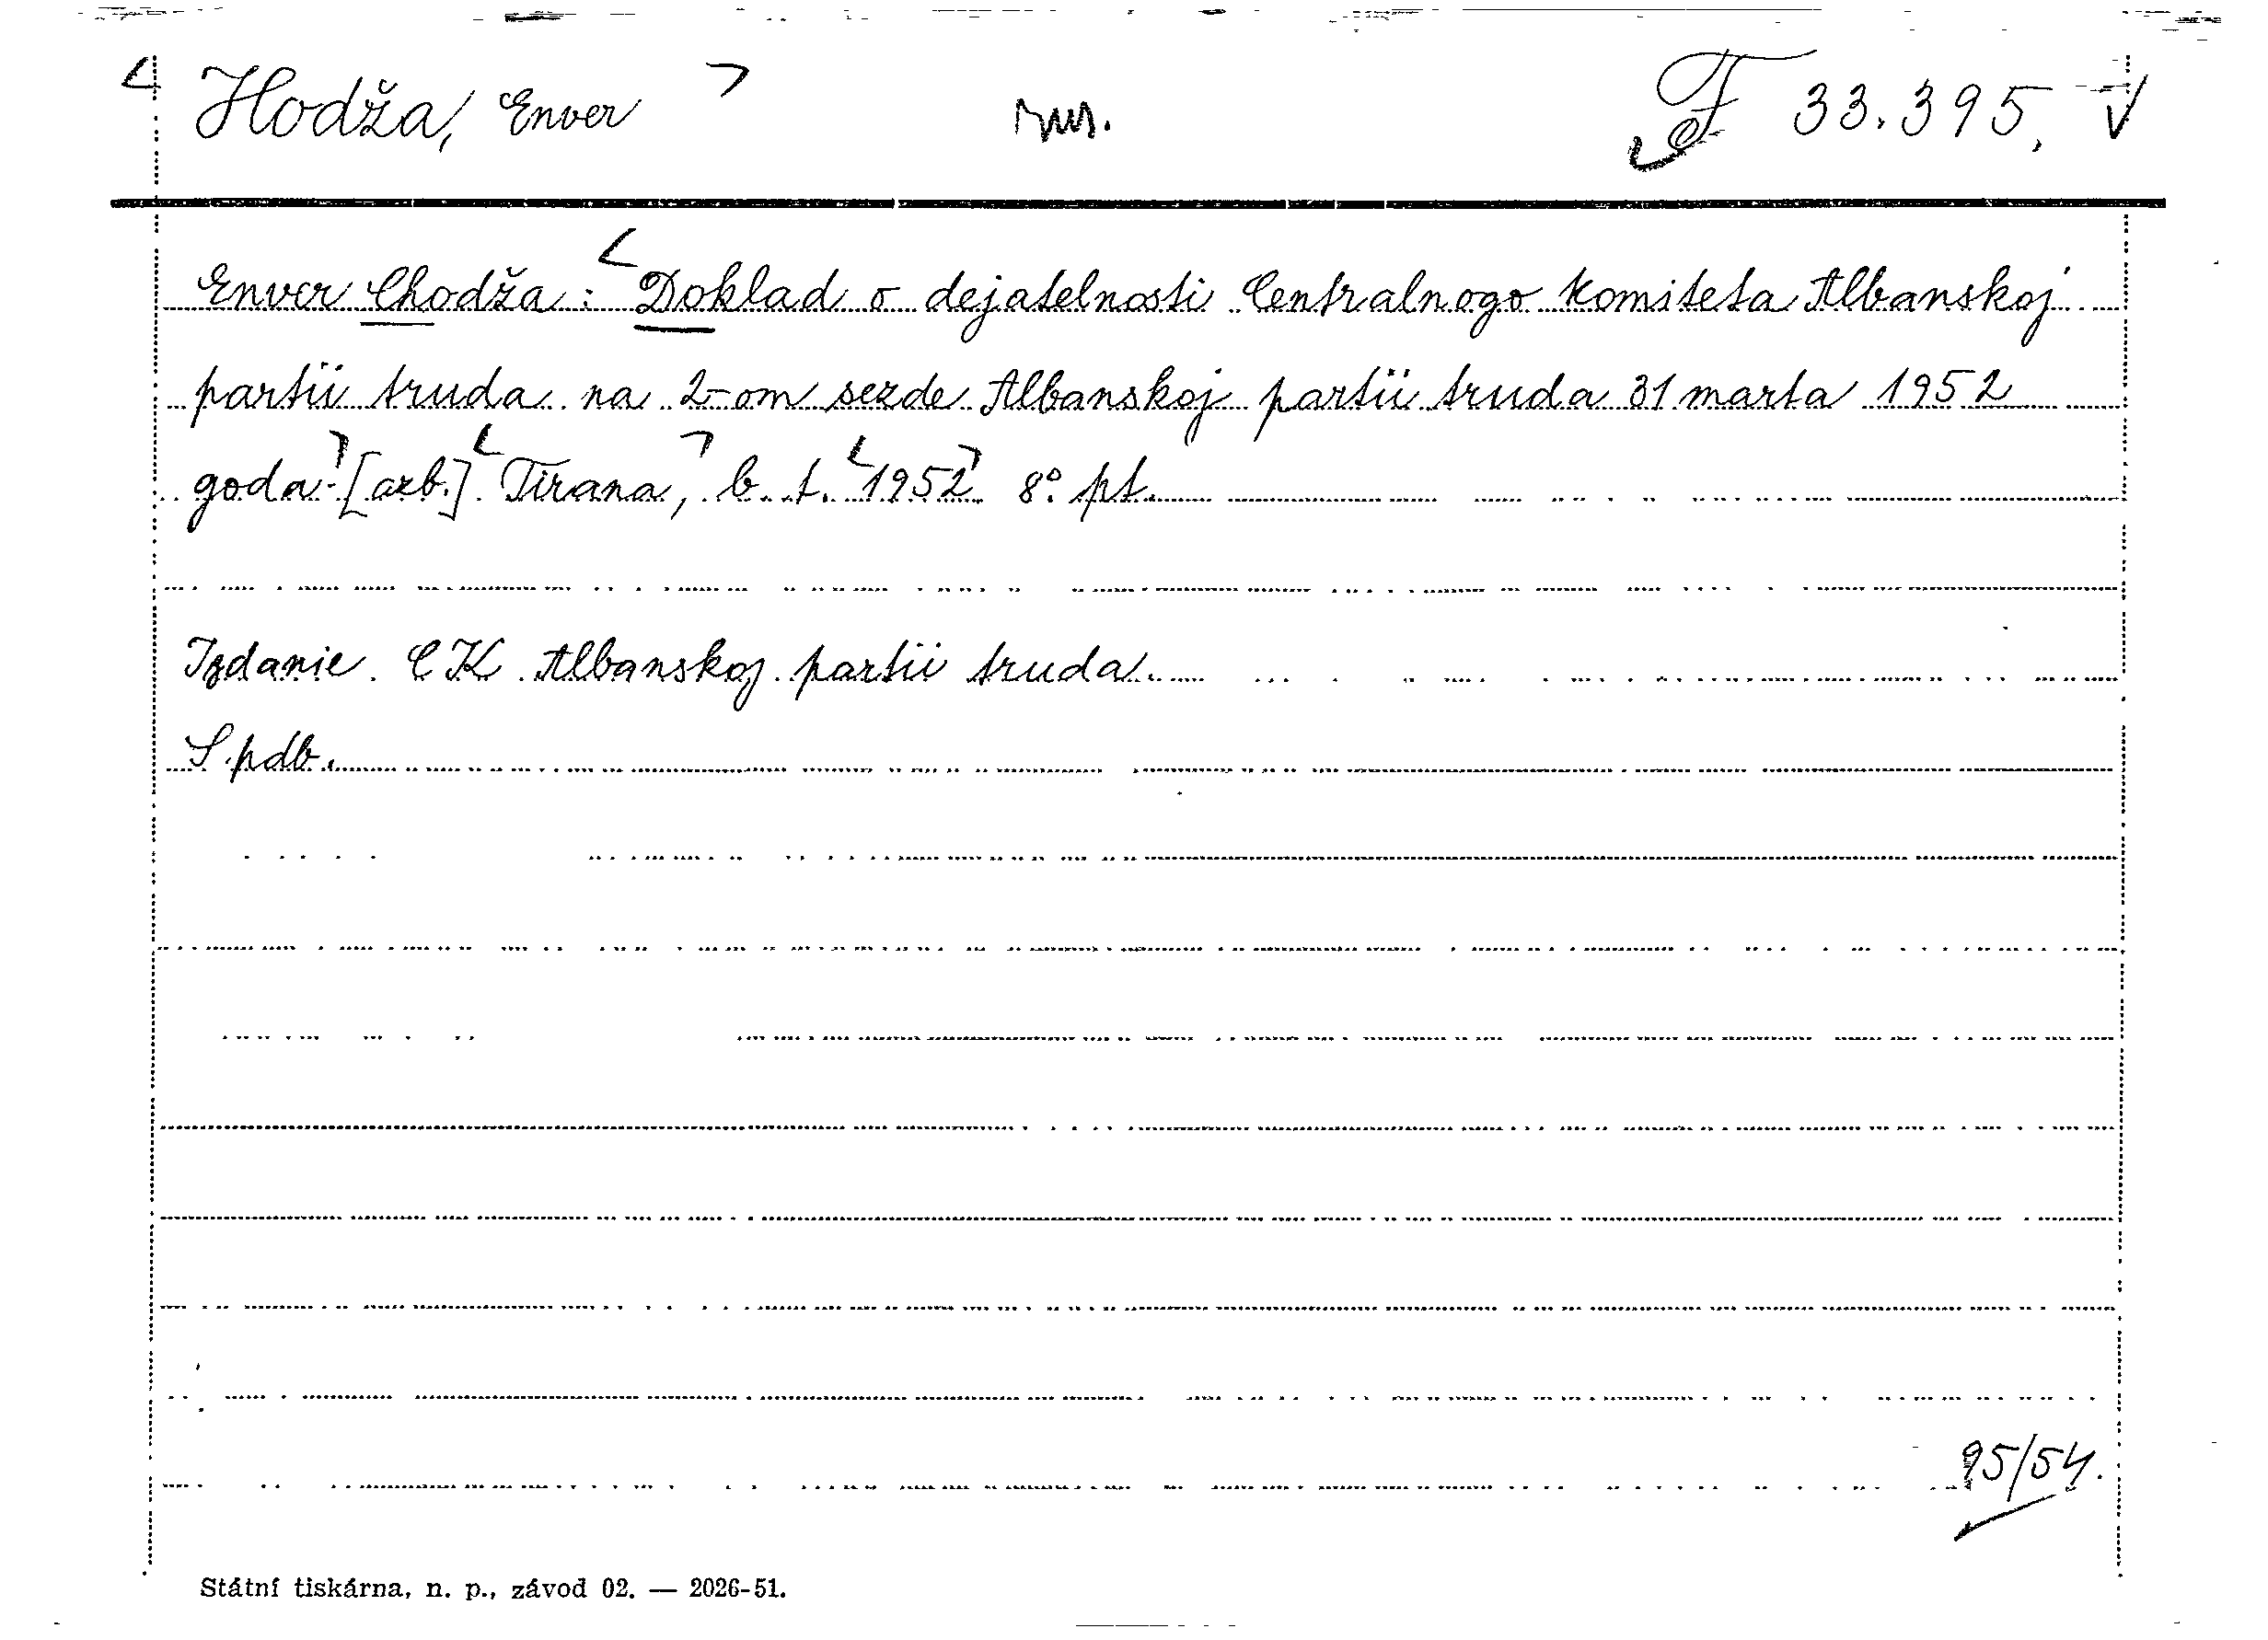 Hodža, Enver rus. F 33.395,
Enver Chodža: Doklad o dejatelnosti Centralnogo komiteta Albanskoj
partii truda na 2-om sezde Albanskoj partii truda 31 marta 1952
goda. [azb.] Tirana, b. t. 1952 8° pt.
Izdanie CK Albanskoj partii truda.
S. pdb.
95/54.
Státní tiskárna, n. p., závod 02. — 2026-51.